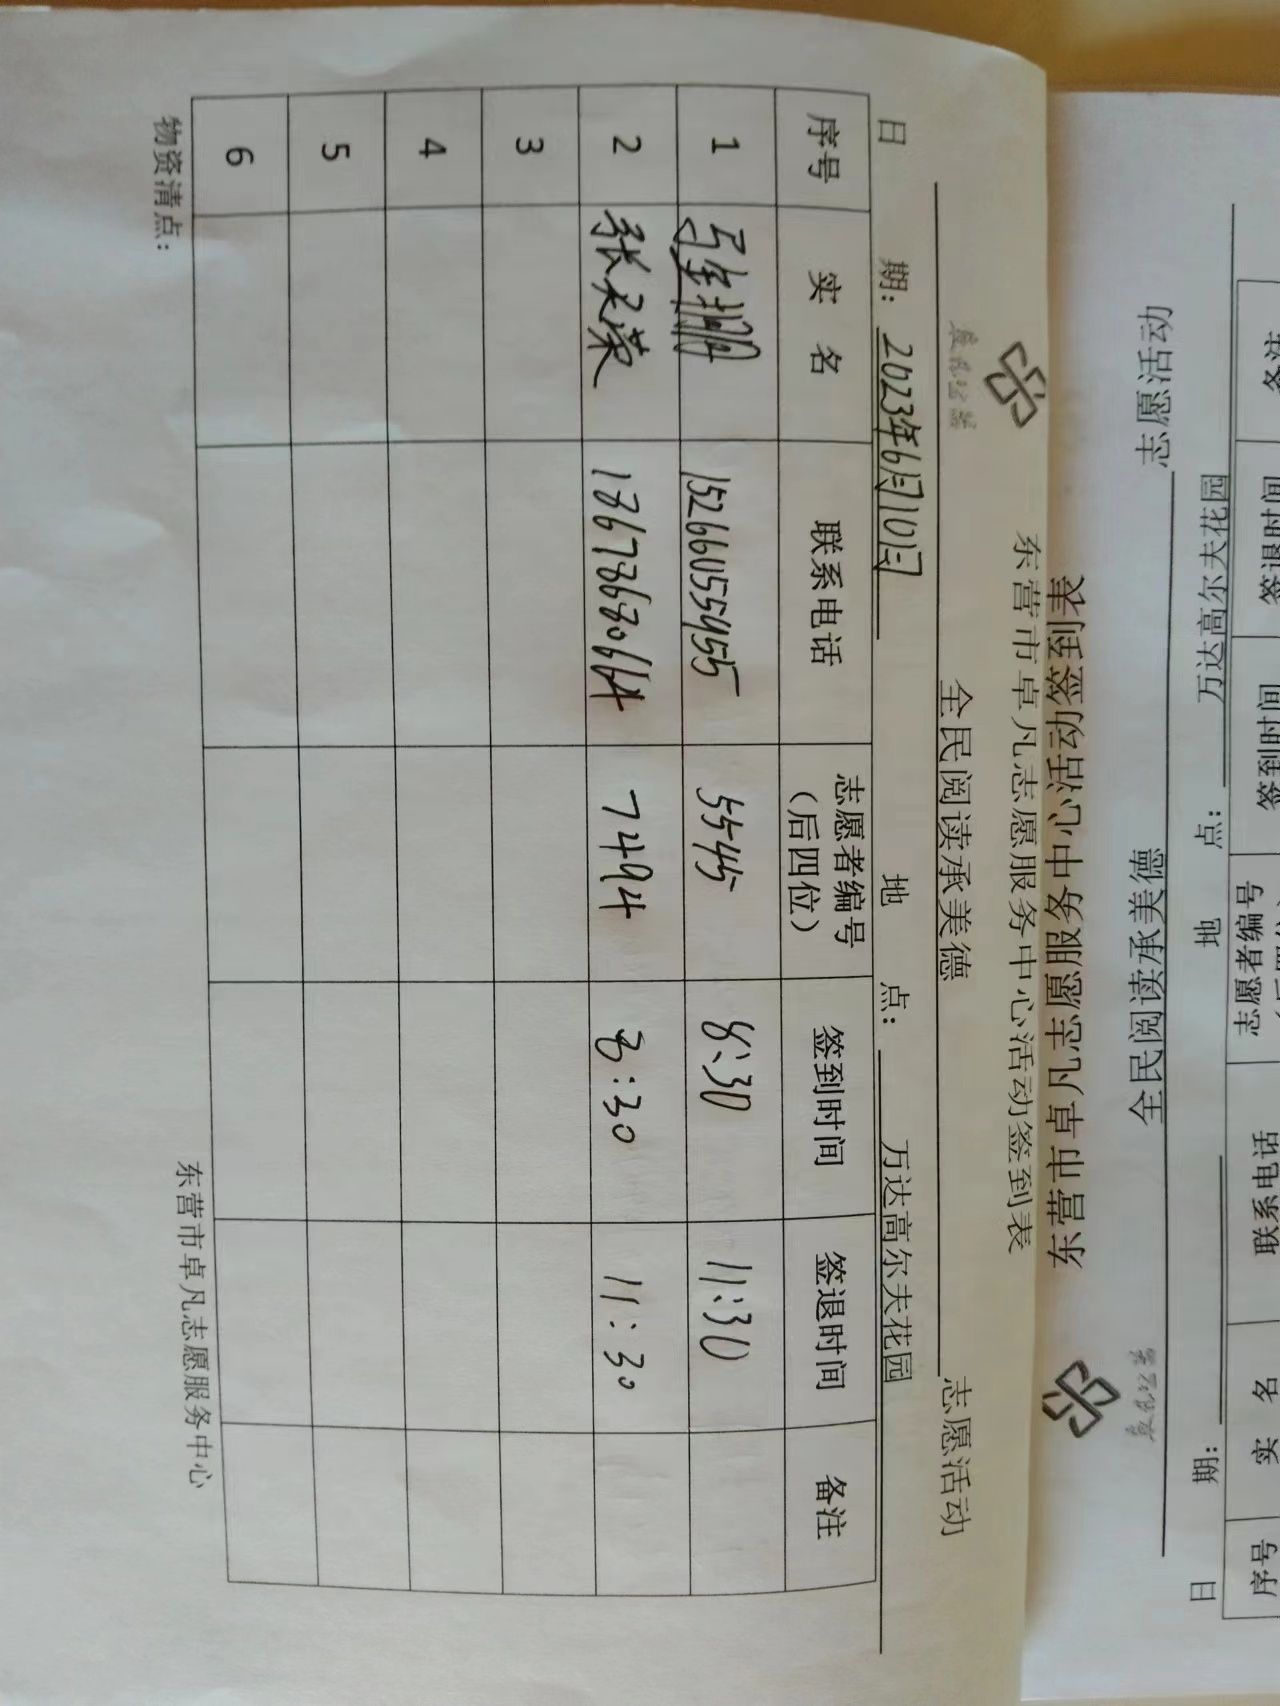 东营市卓凡志愿服务中心活动签到表
全民阅读承美德 志愿活动
日 期：2023年6月10日 地 点：万达高尔夫花园
序号 实 名 联系电话 志愿者编号（后四位） 签到时间 签退时间 备注
1 15266055455 5545 8:30 11:30
2 张天荣 13678680664 7494 8:30 11:30
3
4
5
6
物资清点：
东营市卓凡志愿服务中心
东营市卓凡志愿服务中心活动签到表
全民阅读承美德 志愿活动
日 期： 地 点： 万达高尔夫花园
序号 实 名 联系电话 志愿者编号 签到时间 签退时间 备注